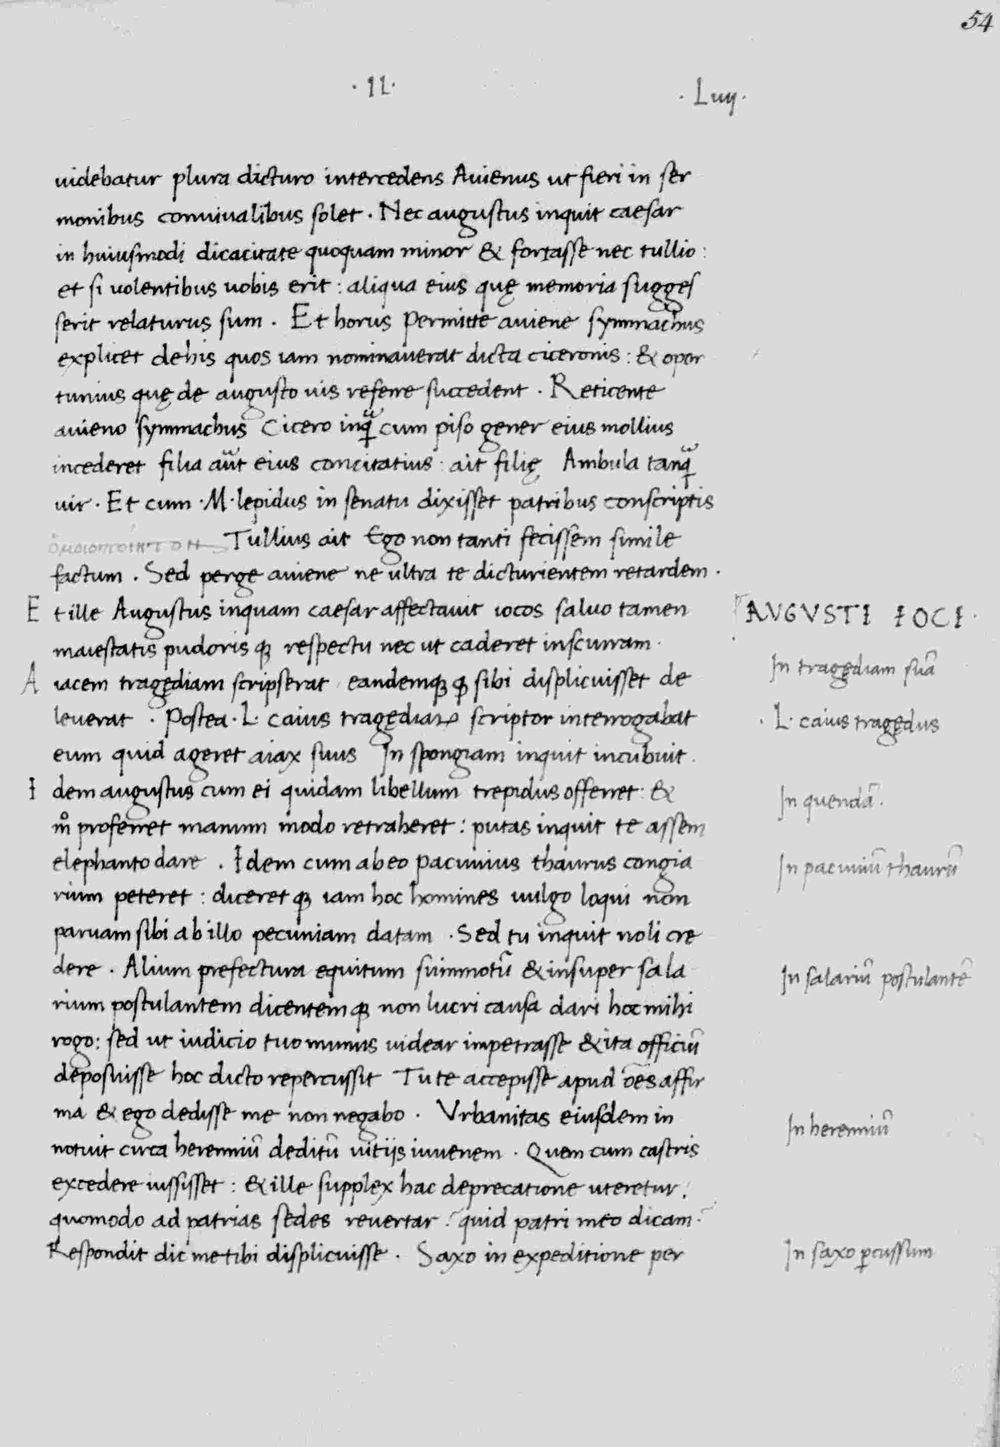 54
· II ·
· Luij ·
uidebatur plura dicturo intercedens Auienus ut fieri in ser
monibus conuiualibus solet . Nec augustus inquit caesar
in huiusmodi dicacitate quoquam minor & fortasse nec tullio :
et si uolentibus uobis erit : aliqua eius quę memoria sugges
serit relaturus sum . Et horus permitte auiene symmachus
explicet de his quos iam nominauerat dicta ciceronis : & opor
tunius quę de augusto uis referre succedent . Reticente
auieno symmachus Cicero inq̃ cum piso gener eius mollius
incederet filia aut̃ eius concitatius : ait filię Ambula tanq̃
uir . Et cum · M · lepidus in senatu dixisset patribus conscriptis
ὁμοιοπτοιητον Tullius ait Ego non tanti fecissem simile
factum . Sed perge auiene ne ultra te dicturientem retardem .
Et ille Augustus inquam caesar affectauit iocos saluo tamen
AUGUSTI IOCI .
maiestatis pudoris qȝ respectu nec ut caderet in scurram .
Aiacem tragędiam scripserat eandemqȝ ꝙ sibi displicuisset de
In tragędiam suā
leuerat . Postea · L · caius tragędiaꝝ scriptor interrogabat
· L · caius tragędus
eum quid ageret aiax suus In spongiam inquit incubuit .
Idem augustus cum ei quidam libellum trepidus offerret : &
In quendā .
m̊ proferret manum modo retraheret : putas inquit te assem
elephanto dare . Idem cum ab eo pacuuius thaurus congia
In pacuuiū thaurū
rium peteret : diceret qȝ iam hoc homines uulgo loqui non
paruam sibi ab illo pecuniam datam . Sed tu inquit noli cre
dere . Alium prefectura equitum summotū & insuper sala
In salariū postulantē
rium postulantem dicentem qȝ non lucri causa dari hoc mihi
rogo : sed ut iudicio tuo munus uidear impetrasse & ita officiū
deposuisse hoc dicto repercussit Tu te accepisse apud ōes affir
ma & ego dedisse me non negabo . Vrbanitas eiusdem in
In herenniū
notuit circa herenniū deditū uitiis iuuenem . Quem cum castris
excedere iussisset : & ille supplex hac deprecatione uteretur :
quomodo ad patrias sedes reuertar ? quid patri meo dicam ?
Respondit dic me tibi displicuisse . Saxo in expeditione per
In saxo ꝑcussum